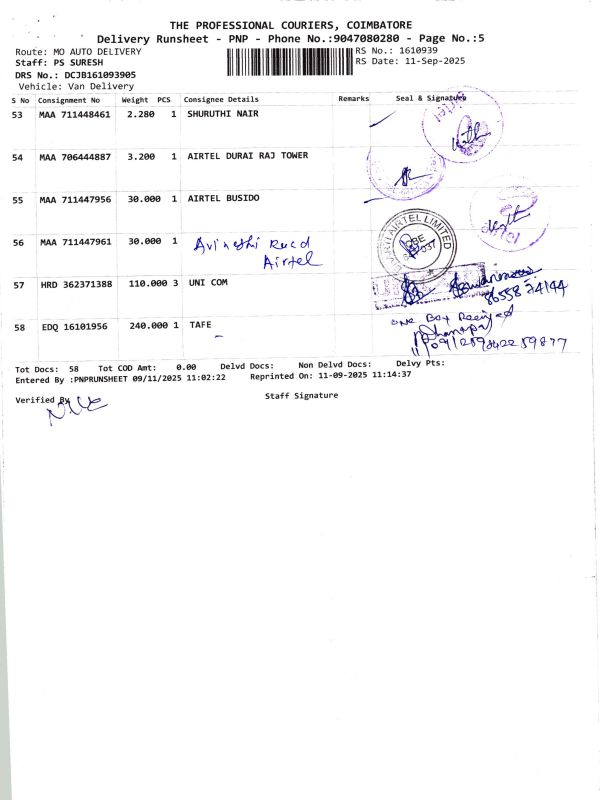 THE PROFESSIONAL COURIERS, COIMBATORE
Delivery Runsheet - PNP - Phone No.:9047080280 - Page No.:5
Route: MO AUTO DELIVERY
RS No.: 1610939
Staff: PS SURESH
RS Date: 11-Sep-2025
DRS No.: DCJB161093905
Vehicle: Van Delivery
S No Consignment No Weight PCS Consignee Details Remarks Seal & Signature
53 MAA 711448461 2.280 1 SHURUTHI NAIR
54 MAA 706444887 3.200 1 AIRTEL DURAI RAJ TOWER
55 MAA 711447956 30.000 1 AIRTEL BUSIDO
56 MAA 711447961 30.000 1 Avinashi Road
Airtel
airtel
AIRTEL LIMITED
57 HRD 362371388 110.000 3 UNI COM
86558 24144
58 EDQ 16101956 240.000 1 TAFE
one Box Received
Tot Docs: 58 Tot COD Amt: 0.00 Delvd Docs: Non Delvd Docs: Delvy Pts:
Entered By :PNPRUNSHEET 09/11/2025 11:02:22 Reprinted On: 11-09-2025 11:14:37
Verified By
Staff Signature